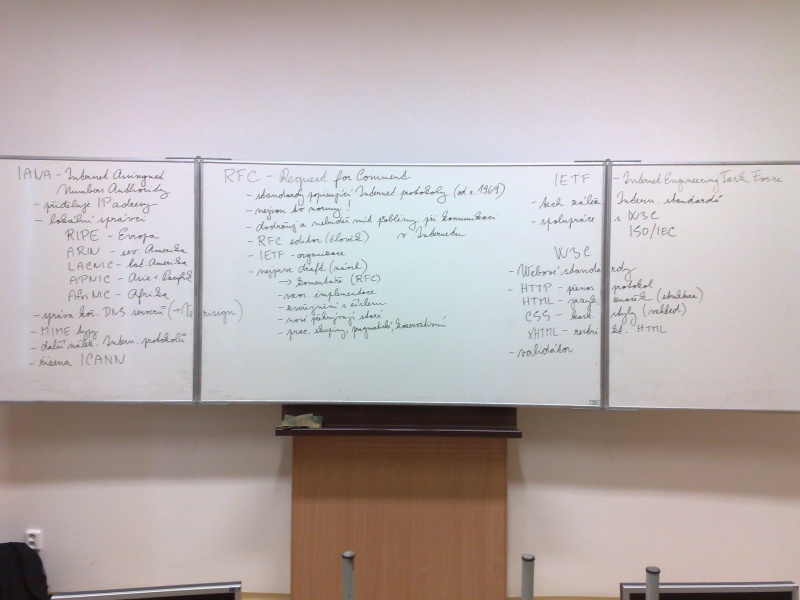 IANA - Internet Assigned
Numbers Authority
- přiděluje IP adresy
- lokální správci
RIPE - Evropa
ARIN - sev. Amerika
LACNIC - lat. Amerika
APNIC - Asie + Pacifik
AfriNIC - Afrika
- správa koř. DNS serverů (→ Verisign)
- MIME typy
- další nálež. Intern. protokolů
- řízena ICANN
RFC - Request for Comment
- standardy popisující Internet protokoly (od r. 1969)
- nejsou to normy!
- dodržuj a nebudeš mít problémy při komunikaci
v Internetu
- RFC editor (člověk)
- IETF - organizace
- nejprve draft (návrh)
→ komentáře (RFC)
- vzor. implementace
- zveřejnění s číslem
- nové překrývají staré
- prac. skupiny pragmatické, konzervativní
IETF - Internet Engineering Task Force
- tech. zálež. Intern. standardů
- spolupráce s W3C
ISO/IEC
W3C
- Webové standardy
- HTTP - přenos. protokol
HTML - jazyk značek (struktura)
CSS - kask. styly (vzhled)
XHTML - restri
- validátor